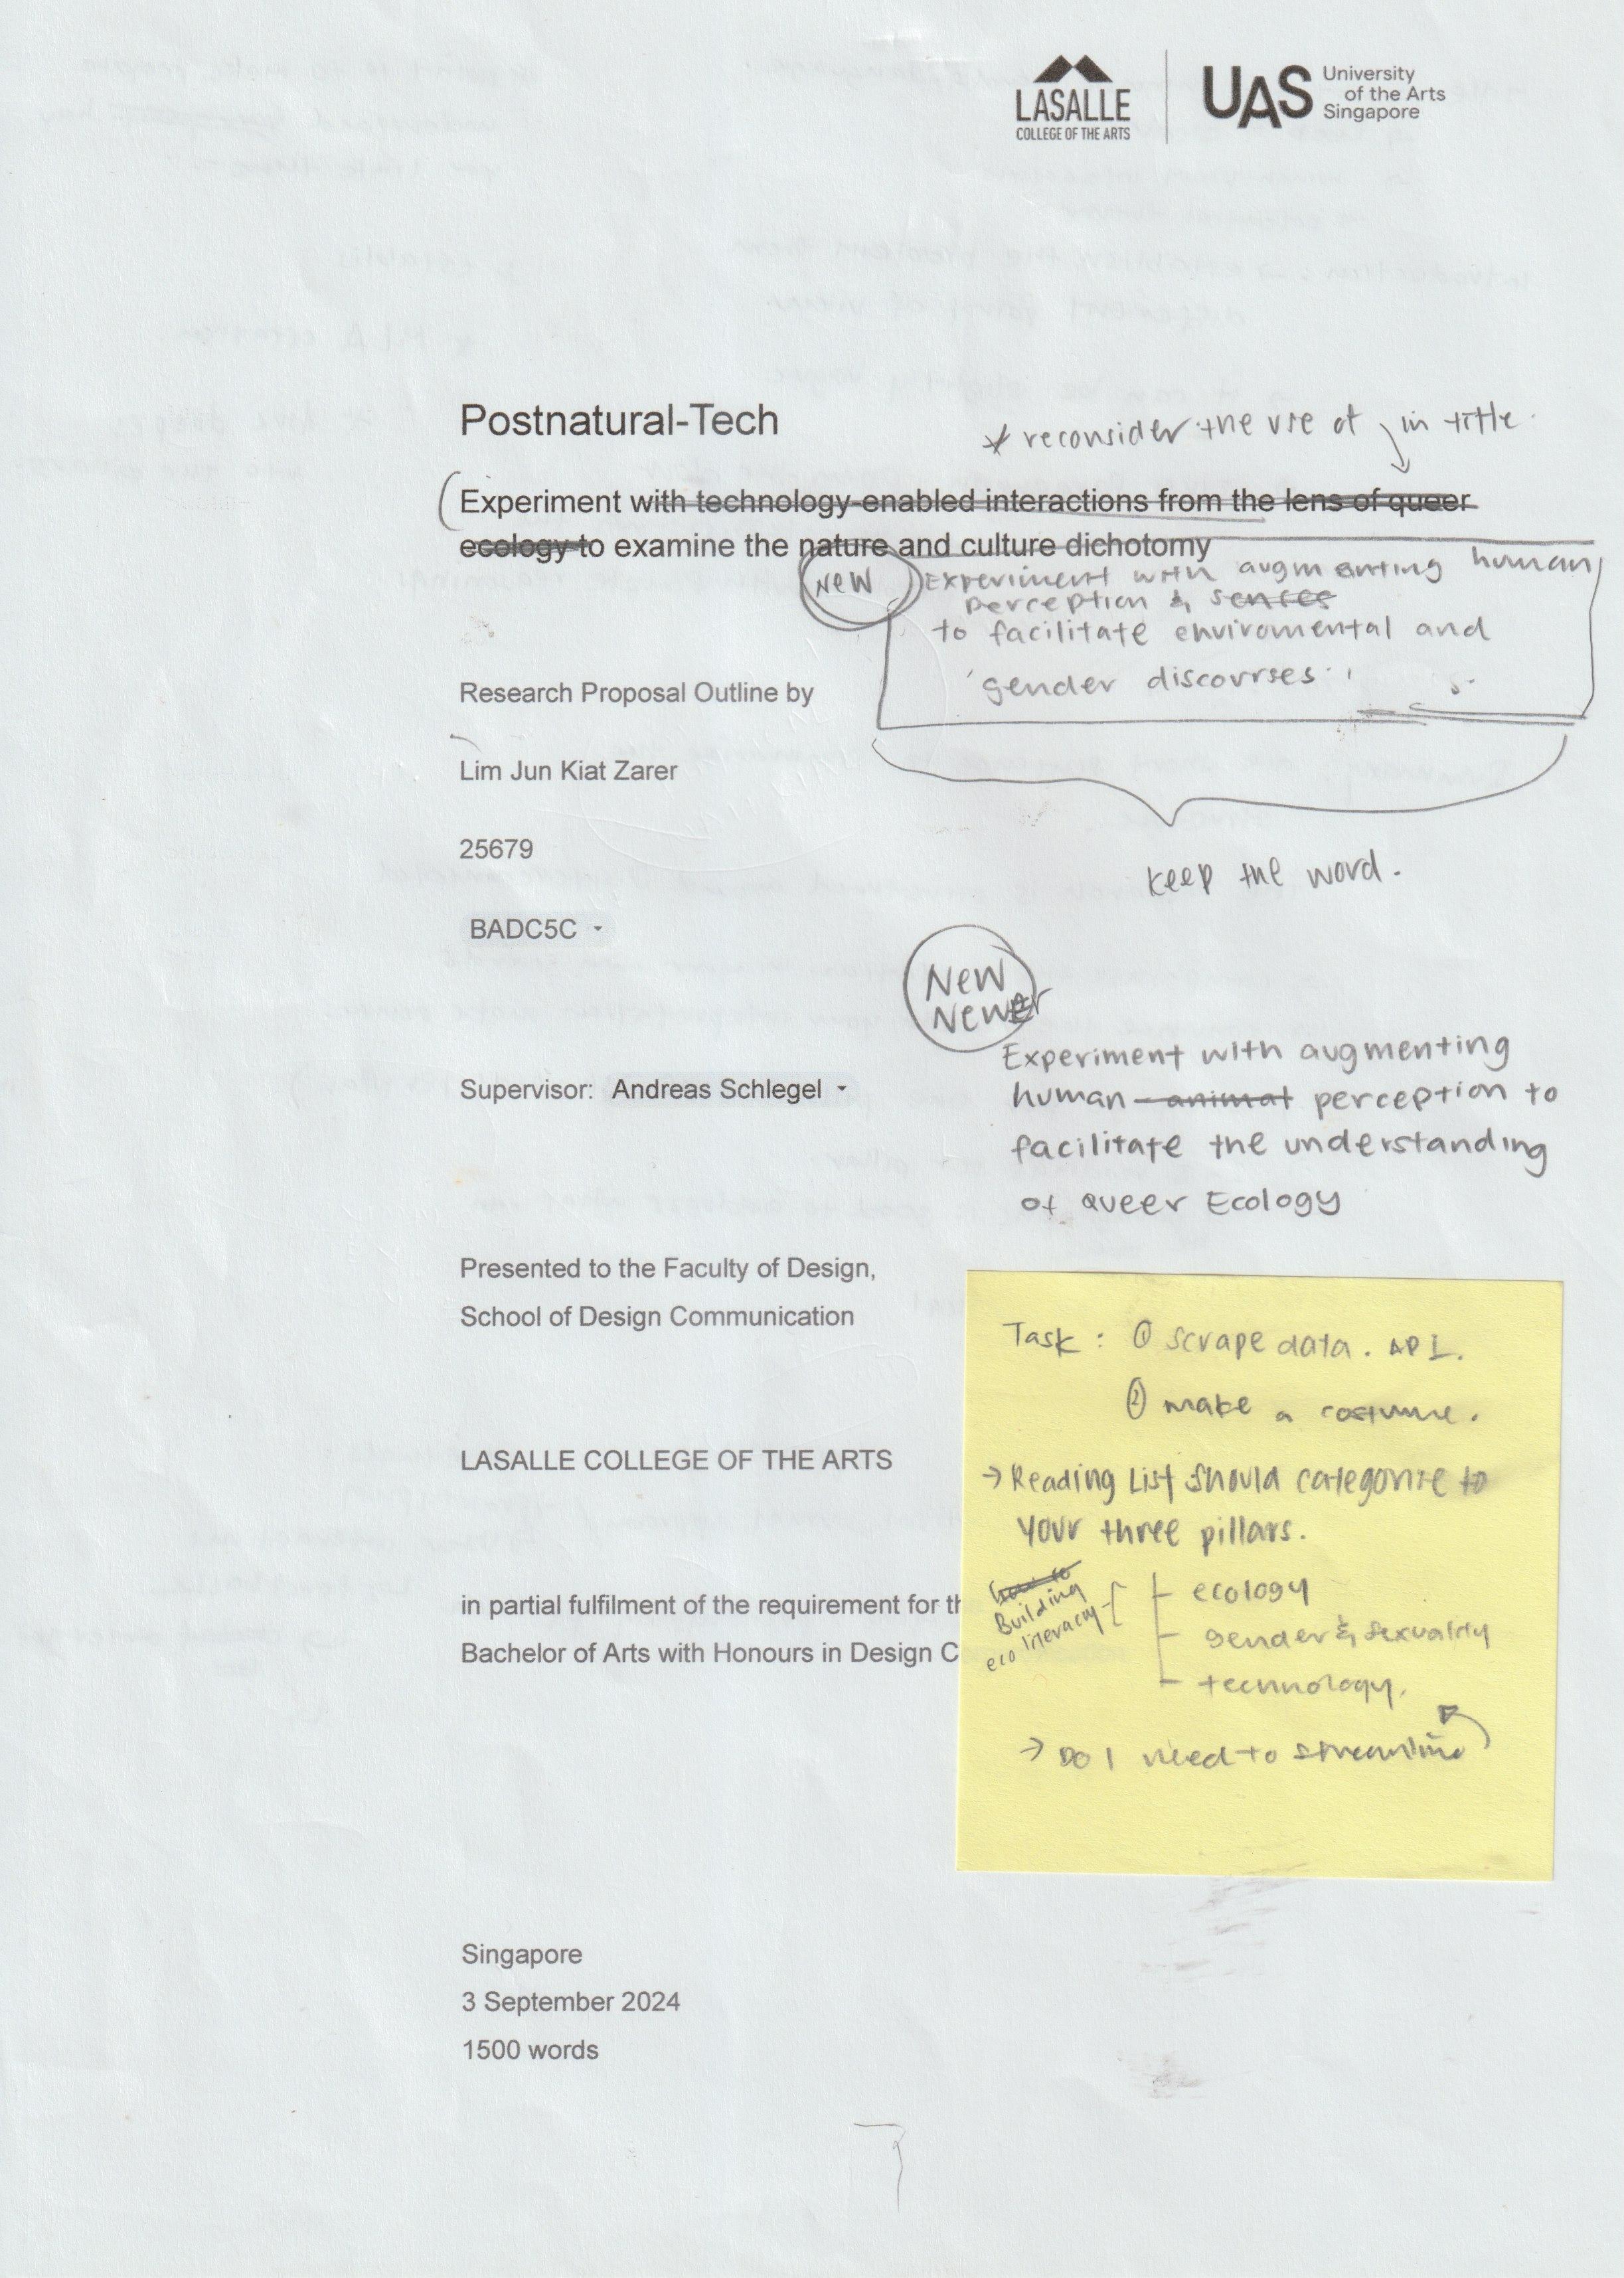 LASALLE
COLLEGE OF THE ARTS
UAS
University
of the Arts
Singapore
Postnatural-Tech
* reconsider the use of in title.
Experiment with technology-enabled interactions from the lens of queer
ecology to examine the nature and culture dichotomy
New
Experiment with augmenting human
perception & senses
to facilitate enviromental and
gender discourses
Research Proposal Outline by
Lim Jun Kiat Zarer
25679
keep the word.
BADC5C
New
Newer
Experiment with augmenting
human animal perception to
facilitate the understanding
of Queer Ecology
Supervisor: Andreas Schlegel
Presented to the Faculty of Design,
School of Design Communication
LASALLE COLLEGE OF THE ARTS
in partial fulfilment of the requirement for th
Bachelor of Arts with Honours in Design C
Task: ① scrape data. API.
② make a costume.
→ Reading List should categorise to
your three pillars.
how to
Building
eco literacy
ecology
gender & sexuality
technology.
→ Do I need to streamline
Singapore
3 September 2024
1500 words